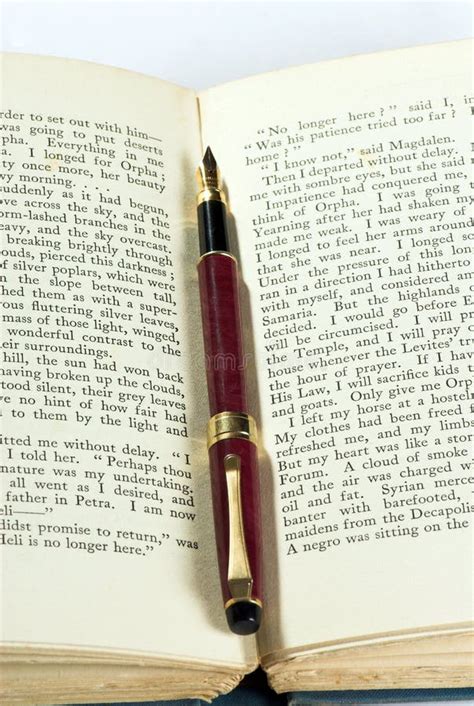 order to set out with him—
was going to put deserts
orpha. Everything in me
I longed for Orpha;
once more, her beauty
y morning. . . .
suddenly as it had begun,
ove across the sky, and the
orm-lashed branches in the
eavy, and the sky overcast.
breaking brightly through
ouds, pierced this darkness;
of silver poplars, which were
n the slope between tall,
hed them as with a plaster.
rous fluttering silver light,
mass of those light, winged,
wonderful contrast to the
heir surroundings.
hill, the sun had become
having broken up the clouds,
tood silent, their grey leaves
ve no hint of how fair had
to them by the light and
itted me without delay.
I told her. "Perhaps thou
nature was my undertaking.
all went as I desired, and
father in Petra. I am now
didst promise to return," was
Heli is no longer here."
"No longer here?" said I,
"Was his patience tried too far?
home?"
"I know not," said Magdalen.
Then I departed without delay.
me with sombre eyes, but she
Impatience had conquered me,
think of Orpha. I was going
Yearning after her had shaken my
made me weak. I was weary of
I longed to feel her arms around
that she was near. I longed
Under the pressure of this
ran in a direction I had hitherto
with myself, and considered
Samaria. But the highlands
decided. I would go before
will be circumcised. I will
the Temple, and I will pray
house whenever the Levites'
the hour of prayer. If I have
His Law, I will sacrifice kids
and goats. Only give me Orpha
I left my horse at a hostelr
My clothes had been freed f
refreshed me, and much-
But my heart was like a storm
Exam. A cloud of smoke
and the air was charged w
oil and fat. Syrian merce
banter with barefooted,
maidens from the Decapolis
A negro was sitting on the